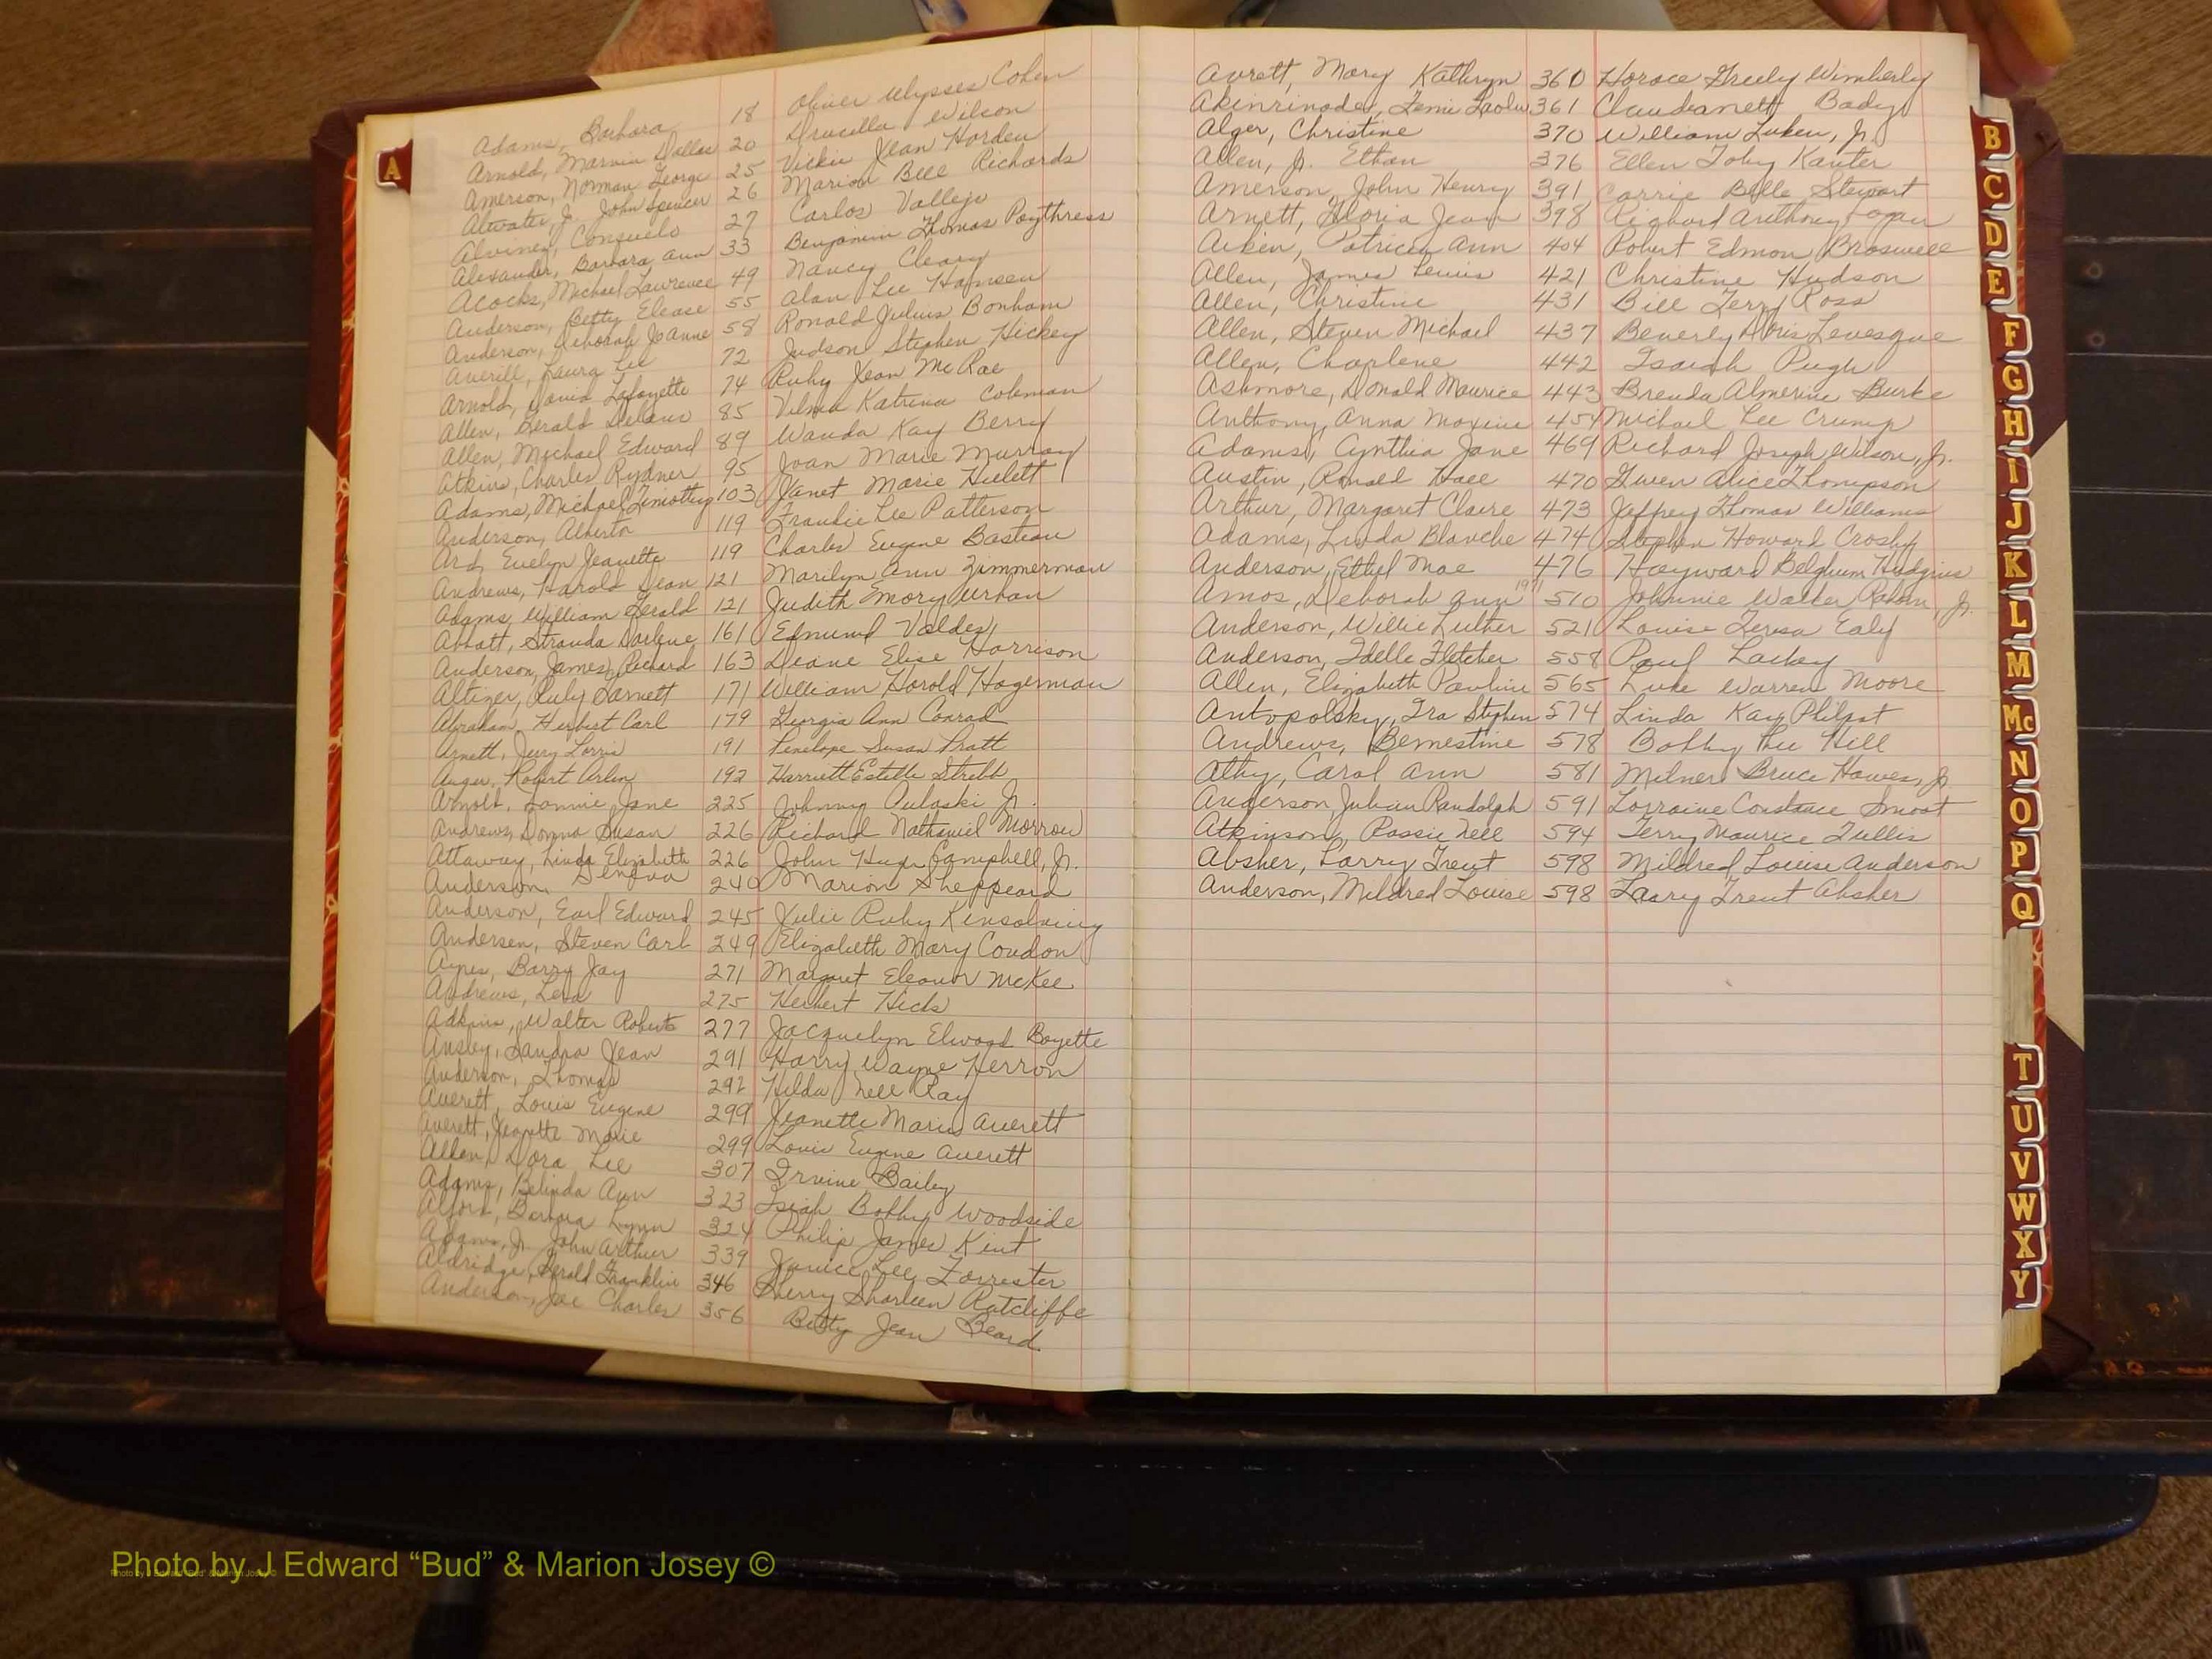 A
Adams, Barbara 18 Oliver Ulysses Cohen
Arnold, Marvin Dallas 20 Drucilla Wilson
Amerson, Norman George 25 Vickie Jean Horden
Atwater, Jr. John Spencer 26 Marion Bell Richards
Consuelo 27 Carlos Vallejo
Alexander, Barbara Ann 33 Benjamin Thomas Poythress
Acocks, Michael Lawrence 49 Nancy Cleary
Anderson, Betty Elease 55 Alan Lee Hansen
Anderson, Deborah Joanne 58 Ronald Julius Bonham
Averill, Laura Lee 72 Judson Stephen Hickey
Arnold, David Lafayette 74 Ruby Jean McRae
Allen, Gerald Delano 85 Velma Katrina Coleman
Allen, Michael Edward 89 Wanda Kay Berry
Atkins, Charles Rydner 95 Joan Marie Murray
Adams, Michael Timothy 103 Janet Marie Hulett
Anderson, Alberta 119 Frankie Lee Patterson
Ard, Evelyn Jeanette 119 Charles Eugene Bastian
Andrews, Harold Dean 121 Marilyn Ann Zimmerman
Adams, William Gerald 121 Judith Emory Urban
Abbott, Stranda Darlene 161 Edmund Valdes
Anderson, James Richard 163 Diane Elise Harrison
Altizer, Ruby Garnett 171 William Harold Hagerman
Abraham, Herbert Carl 179 Georgia Ann Conrad
Arnett, Jerry Lorris 191 Penelope Susan Pratt
Auger, Robert Arlen 192 Harriett Estelle Stribb
Arnold, Lonnie Jane 225 Johnny Pulaski Jr.
Andrews, Donna Susan 226 Richard Nathaniel Morrow
Attaway, Linda Elizabeth 226 John Hugh Campbell, Jr.
Anderson, Geneva 240 Marion Sheppeard
Anderson, Earl Edward 245 Julie Ruby Kinsolving
Andersen, Steven Carl 249 Elizabeth Mary Condon
Ayres, Barry Jay 271 Margaret Eleanor McKee
Andrews, Lena 275 Herbert Hicks
Adkins, Walter Roberts 277 Jacquelyn Elwood Boyette
Ansley, Sandra Jean 291 Harry Wayne Herron
Anderson, Thomas 292 Hilda Nell Ray
Averett, Louis Eugene 299 Jeanette Marie Averett
Averett, Jeanette Marie 299 Louis Eugene Averett
Allen, Dora Lee 307 Irvine Bailey
Adams, Belinda Ann 323 Isiah Bobby Woodside
Alford, Barbara Lynn 324 Philip James Kent
Adams, Jr. John Arthur 339 Janice Lee Forrester
Aldridge, Gerald Franklin 346 Sherry Sharleen Ratcliffe
Anderson, Joe Charles 356 Betty Jean Beard
Avrett, Mary Kathryn 360 Horace Greely Wimberly
Akinrinade, Femi Taolu 361 Claudianett Bady
Alger, Christine 370 William Luken, Jr.
Allen, Jr. Ethan 376 Ellen Toby Kanter
Amerson, John Henry 391 Carrie Belle Stewart
Arnett, Gloria Jean 398 Richard Anthony Logan
Aiken, Patricia Ann 404 Robert Edmon Braswell
Allen, James Lewis 421 Christine Hudson
Allen, Christine 431 Bill Terry Ross
Allen, Steven Michael 437 Beverly Doris Levesque
Allen, Charlene 442 Isaiah Pugh
Ashmore, Donald Maurice 443 Brenda Almerine Burke
Anthony, Anna Maxine 454 Michael Lee Crump
Adams, Cynthia Jane 469 Richard Joseph Wilson, Jr.
Austin, Ronald Hall 470 Gwen Alice Thompson
Arthur, Margaret Claire 473 Jeffrey Thomas Williams
Adams, Linda Blanche 474 Stephen Howard Crosby
Anderson, Ethel Mae 476 Hayward Belghum Hudgins
1971
Amos, Deborah Ann 510 Johnnie Walter Rahm, Jr.
Anderson, Willie Luther 521 Louise Teresa Ealy
Anderson, Idelle Fletcher 558 Paul Lackey
Allen, Elizabeth Pauline 565 Luke Warren Moore
Antopolsky, Ira Stephen 574 Linda Kay Philpot
Andrews, Bernestine 578 Bobby Lee Hill
Athy, Carol Ann 581 Milner Bruce Hawes, Jr.
Anderson, Julian Randolph 591 Lorraine Constance Smoot
Atkinson, Rossie Nell 594 Terry Maurice Tullis
Absher, Larry Trent 598 Mildred Louise Anderson
Anderson, Mildred Louise 598 Larry Trent Absher
B
C
D
E
F
G
H
I
J
K
L
M
Mc
N
O
P
Q
T
U
V
W
X
Y
Photo by J Edward “Bud” & Marion Josey ©
Photo by J Edward “Bud” & Marion Josey ©